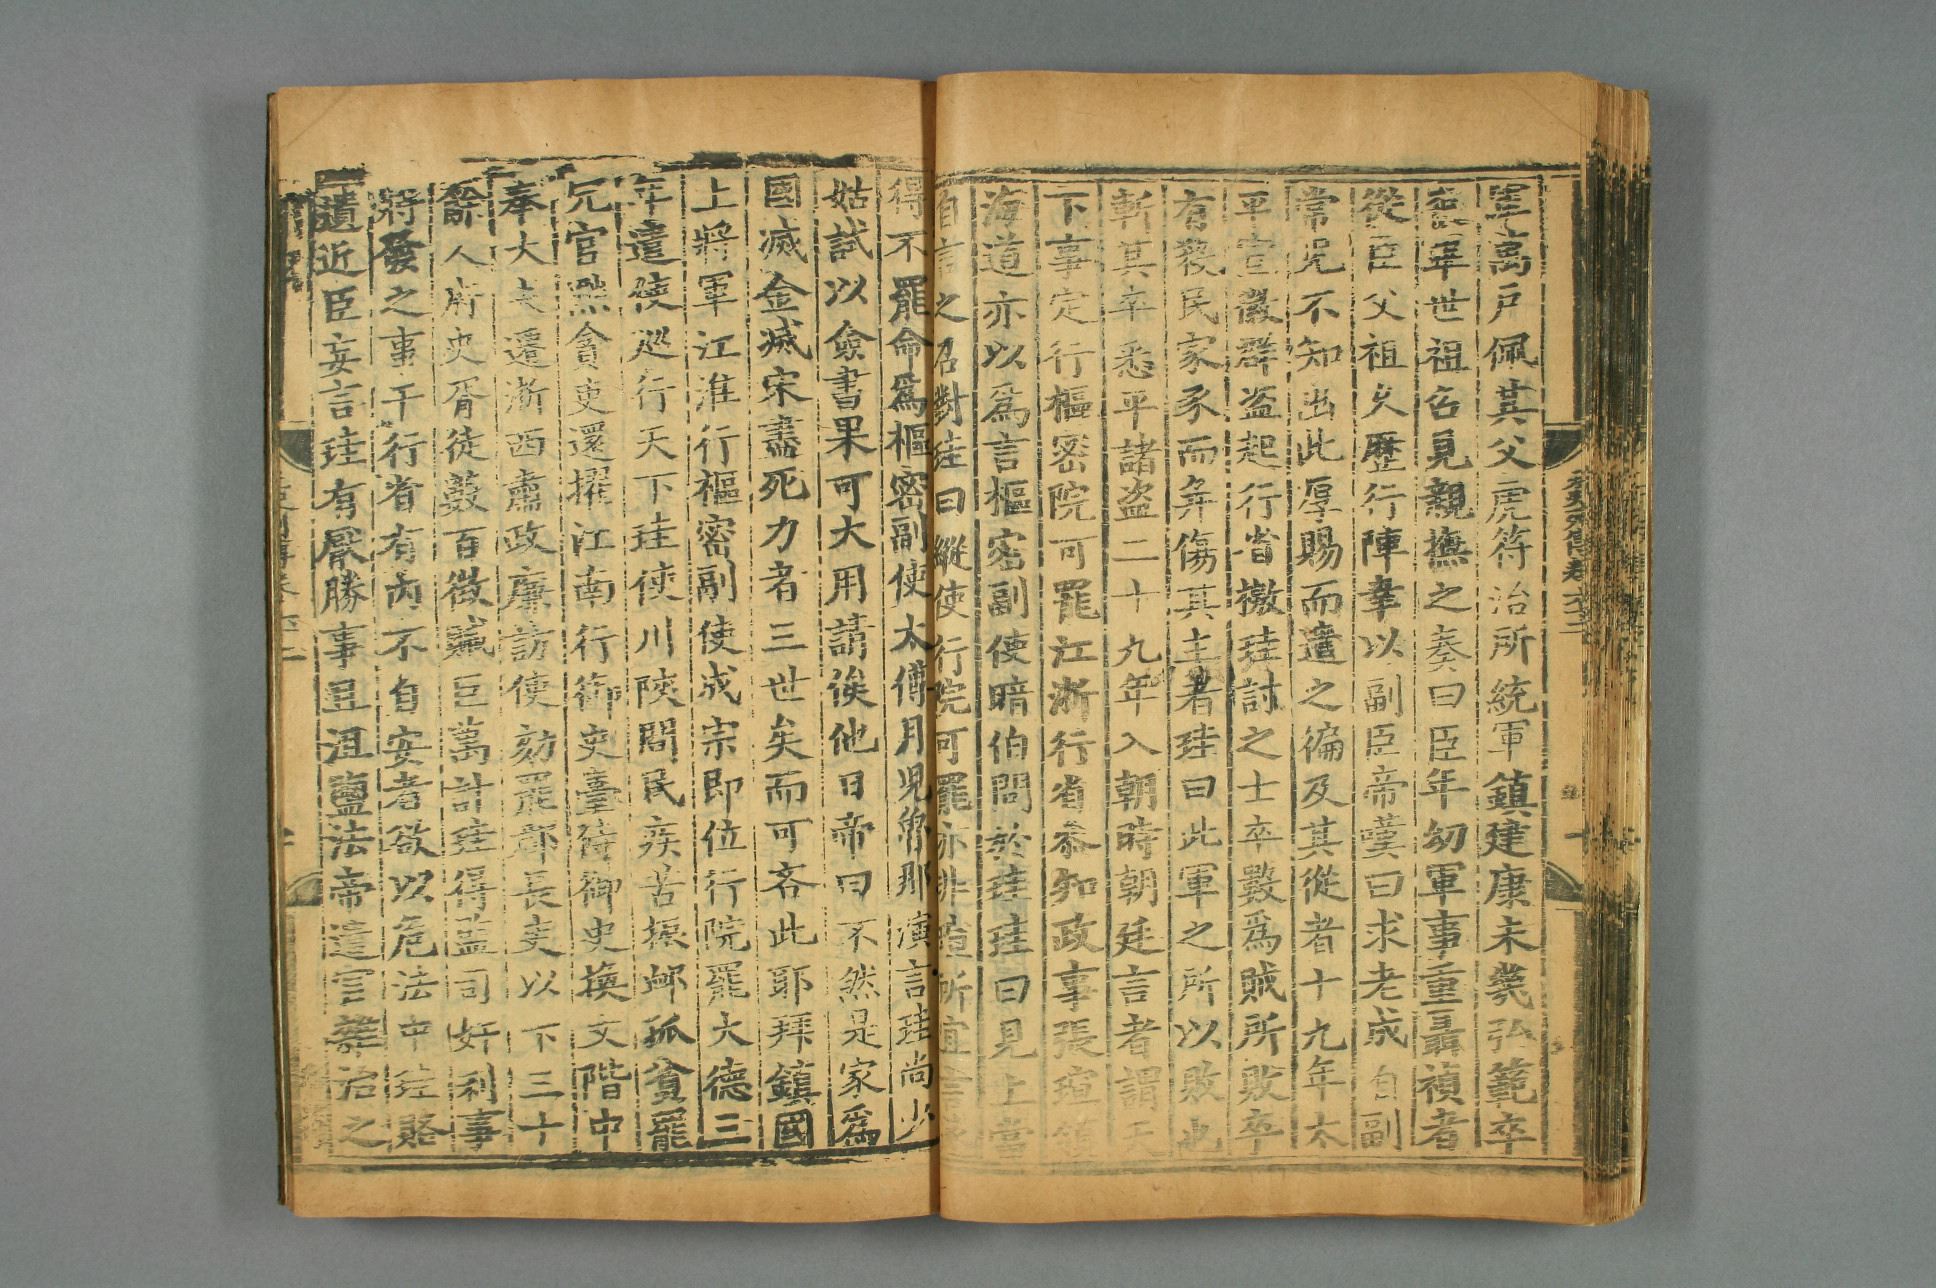 軍萬戶佩其父虎符治所統軍鎮建康未幾弘範卒
喪畢世祖召見親撫之奏曰臣年幼軍事重聶禎者
從臣父祖久歷行陣幸以副臣帝嘆曰求老成自副
常兒不知出此厚賜而遣之徧及其從者十九年太
平宣徽群盗起行省檄珪討之士卒數爲賊所敗卒
有殺民家豕而并傷其主者珪曰此軍之所以敗也
斬其卒悉平諸盗二十九年入朝時朝廷言者謂天
下事定行樞密院可罷江浙行省叅知政事張瑄領
海道亦以爲言樞密副使暗伯問於珪珪曰見上當
自言之召對珪曰縱使行院可罷亦非瑄所宜言遂
得不罷命爲樞密副使太傅月兒魯那演言珪尚少
姑試以僉書果可大用請俟他日帝曰不然是家爲
國滅金滅宋盡死力者三世矣而可吝此耶拜鎮國
上將軍江淮行樞密副使成宗即位行院罷大德三
年遣使巡行天下珪使川陝問民疾苦振卹孤貧罷
冗官黜貪吏還擢江南行御史臺侍御史換文階中
奉大夫遷浙西肅政廉訪使劾罷郡長吏以下三十
餘人府史胥徒數百徵贓巨萬計珪得監司奸利事
將發之事干行省有內不自安者欲以危法中珪賂
遺近臣妄言珪有厭勝事且沮鹽法帝遣官雜治之